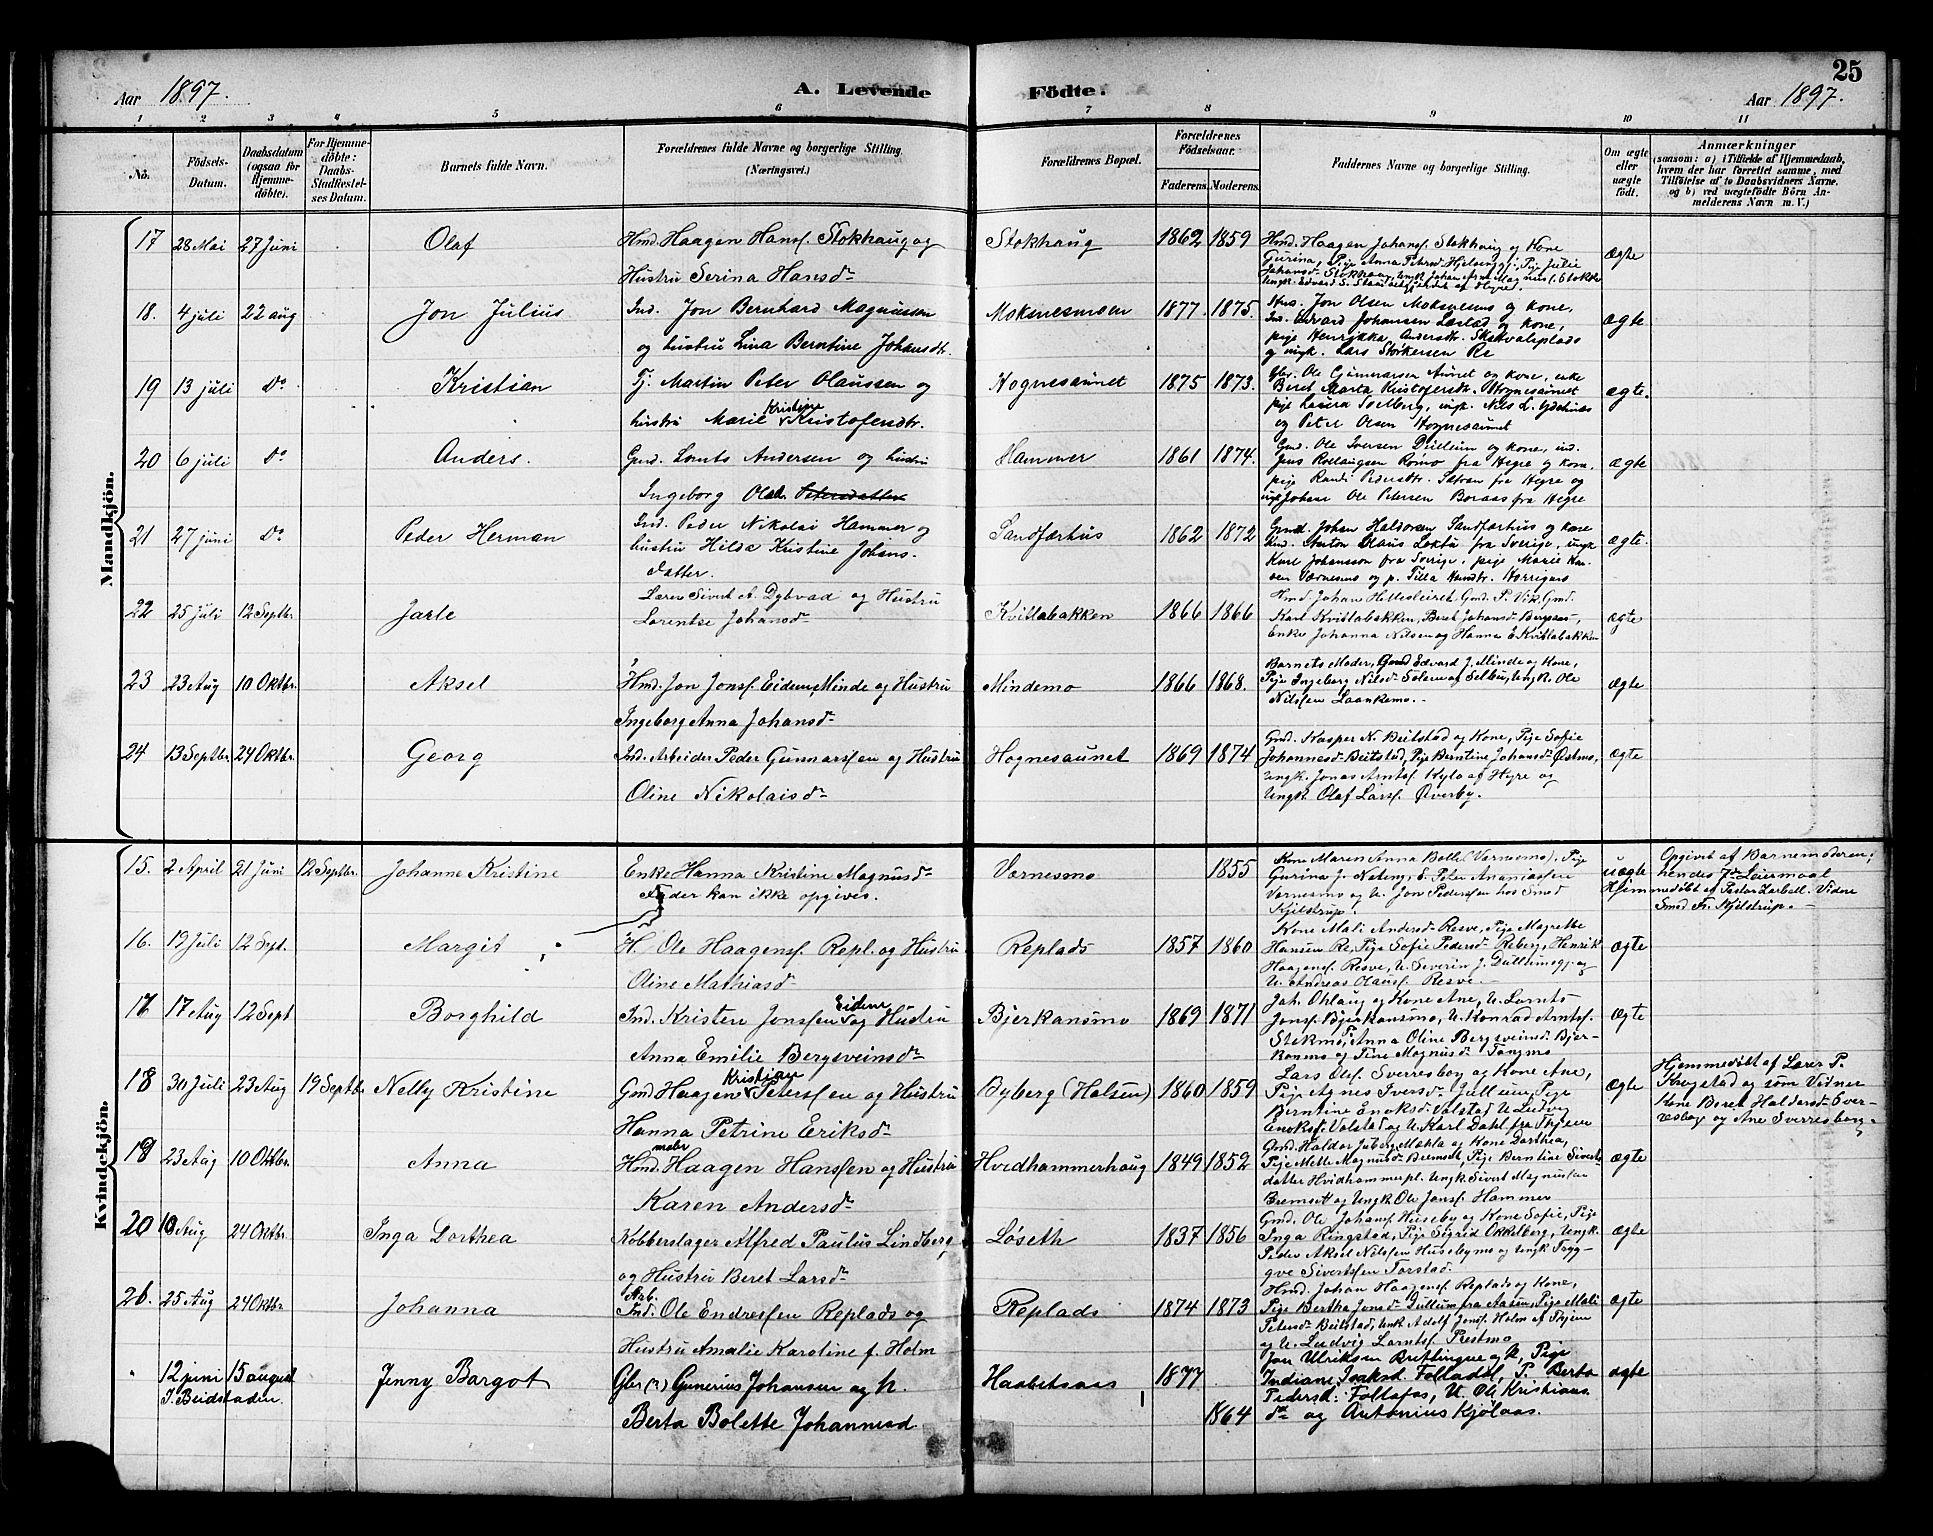 25
Aar 1897.
A. Levende Födte.
Aar 1897.
1 2 3 4 5 6 7 8 9 10 11
No.
Födsels-Datum.
Daabsdatum (ogsaa for Hjemmedöbte).
For Hjemmedöbte: Daabs-Stadfestelses Datum.
Barnets fulde Navn.
Forældrenes fulde Navne og borgerlige Stilling. (Næringsvei.)
Forældrenes Bopæl.
Forældrenes Födselsaar.
Faderens. Moderens.
Faddernes Navne og borgerlige Stilling.
Om ægte eller uægte födt.
Anmærkninger
(saasom: a) i Tilfælde af Hjemmedaab, hvem der har forrettet samme, med Tilföielse af to Daabsvidners Navne, og b) ved uægtefödte Börn Anmelderens Navn m. V.)
Mandkjön.
17 28 Mai 27 Juni Olaf
Hmd. Haagen Hansf. Stokhaug og
Hustru Serina Hansd.
Stokhaug 1862 1859
Hmd. Haagen Johansf. Stokhaug og Kone
ægte
18. 4 juli 22 aug Jon Julius
Ind. Jon Bernhard Magnussen
og hustru Lina Berntine Johansdtr.
Moksnesmoen 1877. 1875.
Hus. Jon Olsen Moksnesmo og kone,
Ind. Edvard Johansen Læstad og kone,
pige Henrikka Andersdtr. Skatvalsplads
og ungk. Lars Størkersen Re
ægte
19 13 juli Do Kristian
Tj. Martin Peter Olaussen og
hustru Marie Kristine Kristofersdtr.
Hognesaunet 1875 1873.
Gbr. Ole Gunnarsen Aunet og kone, enke
Beret Marta Kristofersdtr. Hognesaunet
og Peter Olsen Hognesaunet
ægte.
20 6 juli Do Anders.
Gmd. Lornts Andersen og hustru
Ingeborg Olsd. Petersdatter
Hammer 1861 1874.
Gmd. Ole Iversen Dullum og kone, ind.
Jens Rollaugsen Rømo fra Hegre og kone,
pige Randi Pedersdtr. Sætran fra Hegre og
ungk. Johan Ole Petersen Boraas fra Hegre
ægte
21 27 juni Do Peder Herman
Ind. Peder Nikolai Hammer og
hustru Hilda Kristine Johans-
datter.
Sandfærhus 1862 1872
Gmd. Johan Haldorsen Sandfærhus og kone
Karl Johansson fra Sverige, pige Marie Han-
ægte.
22 25 Juli 12 Septbr. Jarle
Lærer Sivert A. Dybvad og Hustru
Lorentse Johansd.
Kvitlabakken 1866 1866
Hmd. Johan Hellesleiret, Gmd. P. Vik, Gmd.
Karl Kvitlabakken, Beret Johansd.
Enke Johanna Nilsen og Hanna E. Kvitlabakken
ægte
23 23 Aug 10 Oktbr. Aksel
Hmd. Jon Jonsf. Eidem Minde og Hustru
Ingeborg Anna Johansd.
Mindemo 1866 1868.
Barnets Moder, Gmd. Edvard J. Minde og Kone,
Pige Ingeborg Nilsd. Solem af Selbu, Ungk. Ole
Nilssen Laankemo.
ægte
24 13 Septbr. 24 Oktbr. Georg
Ind. Arbeider Peder Gunnarssen og Hustru
Oline Nikolaisd.
Hognesaunet 1869 1874
Gmd. Kasper N. Beitstad og Kone, Pige Sofie
Johannesd. Beitstad, Pige Berntine Johansd. Østmo,
Ungk. Jonas Arntsf. Kylo af Hegre og
Ungk. Olaf Larsf. Øverby.
ægte
Kvindekjön.
15. 2 April 21 Juni 12 Septbr. Johanne Kristine
Enke Hanna Kristine Magnusd.
Fader kan ikke opgives.
Værnesmo 1855
Kone Maren Anna Bolle (Værnesmo), Pige
Gurina J. Naberg, S. Peter Ananiassen
Værnesmo og U. Jon Pederssen hos Smed
Kjelstrup.
uægte
Opgivet af Barnemoderen;
hendes 7de Leiermaal
Hjemmedøbt af Pastor Zarbell. Vidne
Smed Fr. Kjelstrup.
16. 19 Juli 12 Sept. Margit
H. Ole Haagensf. Repl. og Hustru
Oline Mathiasd.
Replads 1857 1860
Kone Mali Andersd. Resve, Pige Magrethe
Hansen Re, Pige Sofie Pedersd. Reberg, Henrik
Haagensf. Resve, U. Severin J. Dullumegg. og
U. Andreas Olausf. Resve.
ægte
17 17 Aug 12 Sept Borghild
Ind. Kristen Jonssen Eidem og Hustru
Anna Emilie Bergsveinsd.
Bjerkansmo 1869 1871
Joh. Ohlaug og Kone Ane, U. Lornts
Jonsf. Bjerkansmo, U. Konrad Arntsf.
Stekmo, Pi. Anna Oline Bergsveinsd. Bjer-
kansmo og Pine Magnusd. Tangmo
ægte
18 30 Juli 23 Aug 19 Septbr Nelly Kristine
Gmd. Haagen Kristian Peterssen og Hustru
Hanna Petrine Eriksd.
Byberg (Halsen) 1860 1859
Lars Olsf. Sverresborg og Kone Ane,
Pige Agnes Iversd. Jullum, Pige
Berntine Enoksd. Valstad, U. Ludvig
Enoksf. Valstad og U. Karl Dahl fra Thjem
ægte
Hjemmedøbt af Lærer P.
Krogstad og som Vidner
Kone Beret Haldorsd. Sver-
resborg og Ane Sverresborg.
19 23 Aug 10 Oktbr. Anna
Hmd. maler Haagen Hanssen og Hustru
Karen Andersd.
Hvidhammerhaug 1849 1852
Gmd. Haldor Juberg Mæhla og Kone Dorthea,
Pige Mette Magnusd. Bremset, Pige Berntine Siverts-
datter Hvidhammerpl. Ungk. Sivert Magnussen
Bremsett og Ungk. Ole Jonsf. Hammer
ægte
20 10 Aug 24 Oktbr. Inga Dorthea
Kobberslager Alfred Paulus Lindberg
og Hustru Beret Larsd.
Løseth 1837 1856
Gmd. Ole Johansf. Huseby og Kone Sofie, Pige
Inga Ringstad, Pige Sigrid Okkelberg, Ungk.
Peder Aksel Nilssen Husebymo og Ungk. Tryg-
gve Sivertssen Forstad.
ægte
26. 25 Aug 24 Oktbr Johanna
Ind. Arb. Ole Endressen Replads og
Hustru Amalie Karoline f. Holm
Replads 1874 1873
Hmd. Johan Haagensf. Replads og Kone,
Pige Bertha Jonsd. Dullum fra Aasen, Pige Mali
Petersd. Beitstad, Ungk. Adolf Jonsf. Holm af Thjem
og U. Ludvig Larntsf. Prestmo
ægte
" 12 juni 15 august Jenny Bargot
I. Beidstaden.
Gbr (?) Gunerius Johansen og h.
Berta Bolette Johannesd.
Haabetsaas 1877 1864
Jon Ulriksen Brettingue og k, Pige
Indiane Isaksd. Foldadal, P. Berta
Pedersd. Foltafos, U. Ole Kristians
dn og Antonius Kjölaas.
ægte